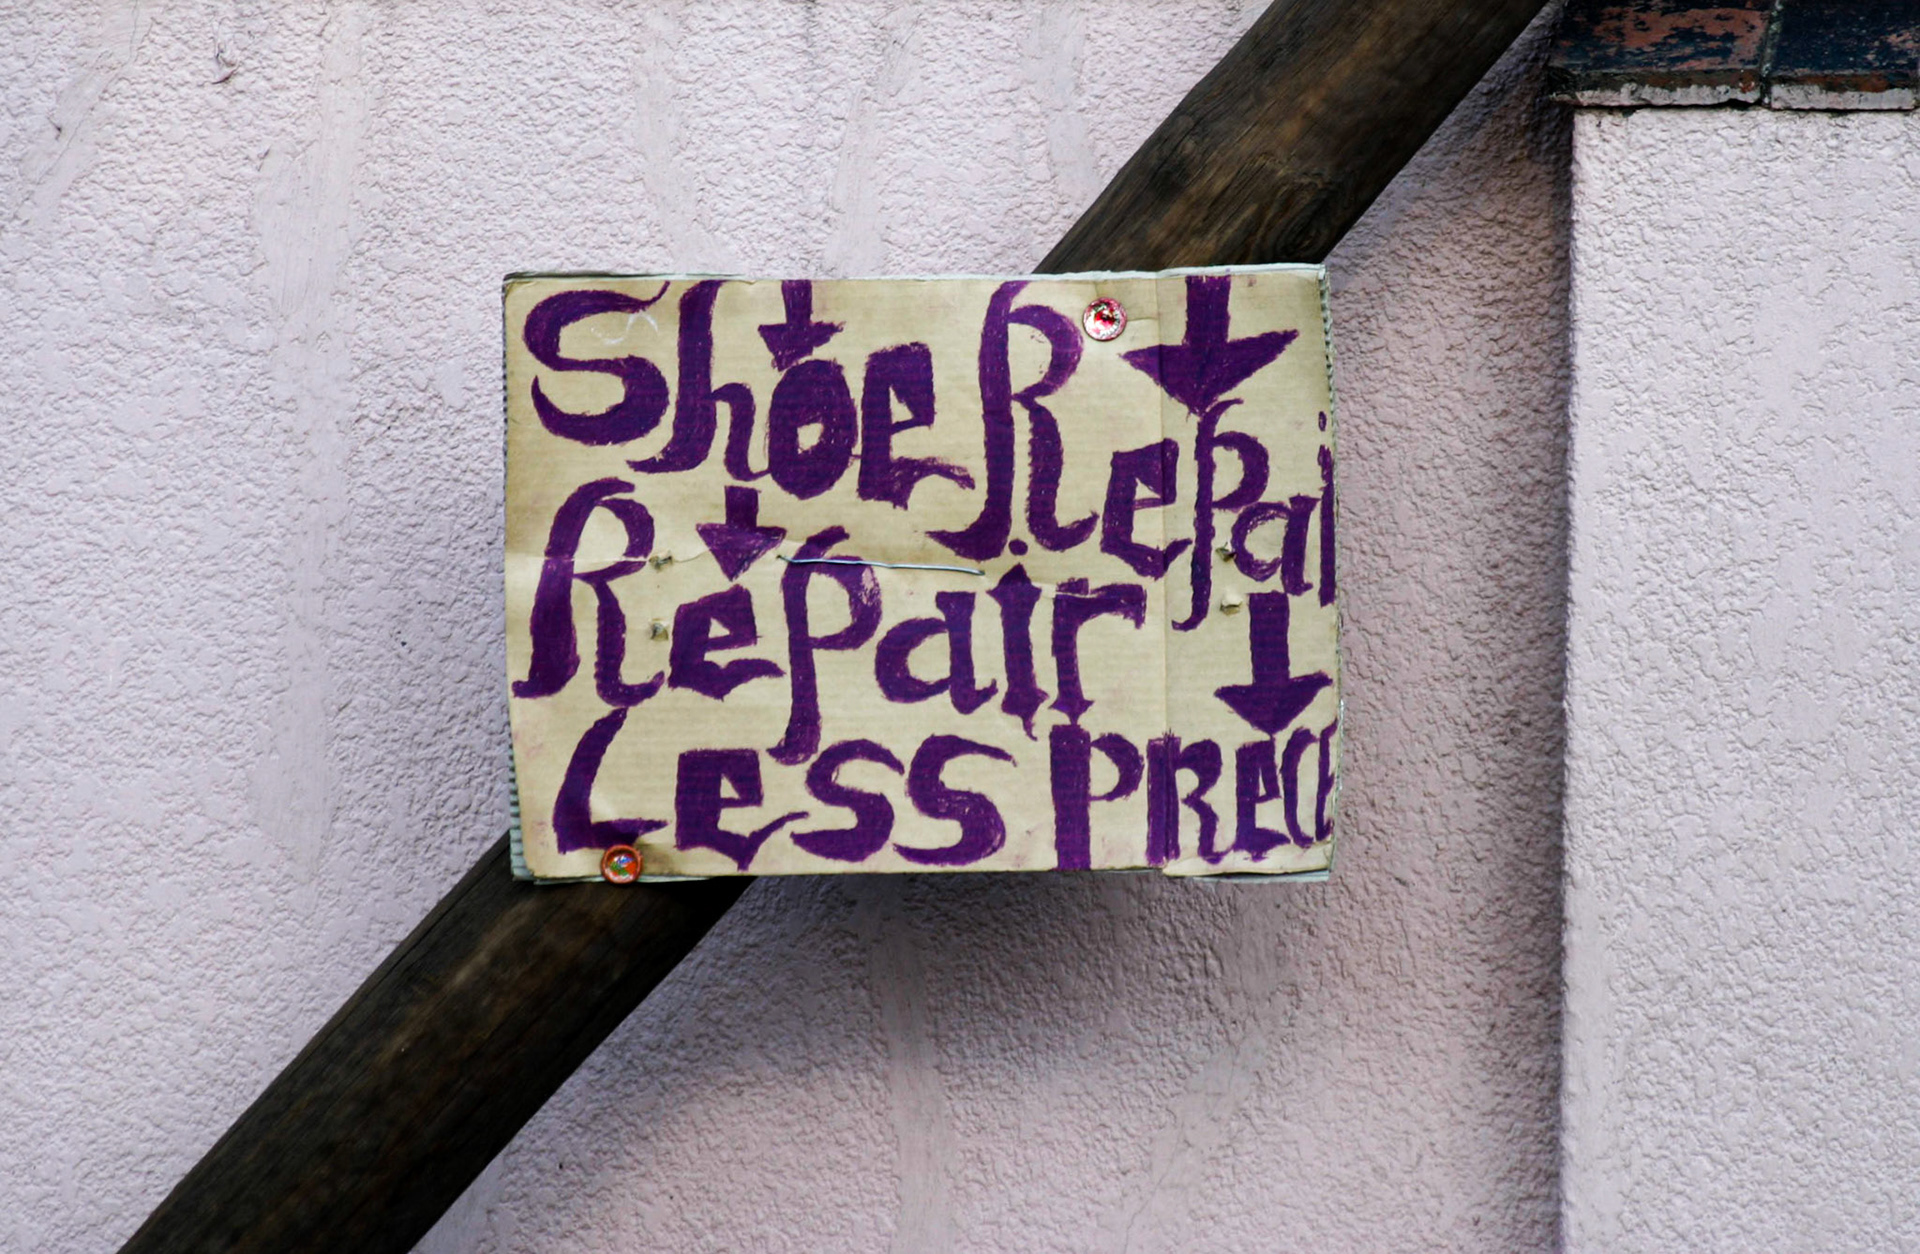 Shoe Repai
Repair
Less PRECE